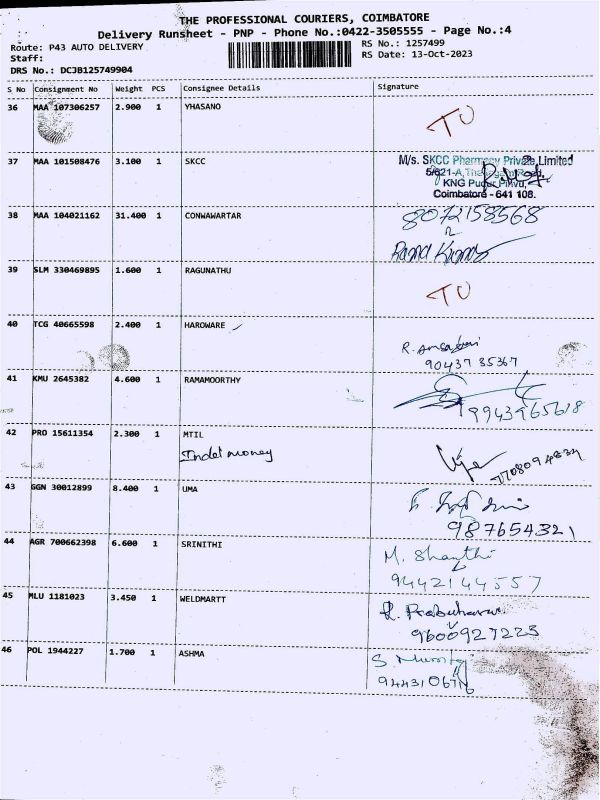 THE PROFESSIONAL COURIERS, COIMBATORE
Delivery Runsheet - PNP - Phone No.:0422-3505555 - Page No.:4
Route: P43 AUTO DELIVERY RS No.: 1257499
Staff: RS Date: 13-Oct-2023
DRS No.: DCJB125749904
S No Consignment No Weight PCS Consignee Details Signature
36 MAA 107306257 2.900 1 YHASANO TU
37 MAA 101508476 3.100 1 SKCC M/s. SKCC Pharmacy Private Limited
5/621-A, Road,
KNG Pudur Pirivu,
Coimbatore - 641 108.
38 MAA 104021162 31.400 1 CONWAWARTAR 8072158568
39 SLM 330469895 1.600 1 RAGUNATHU TU
40 TCG 40665598 2.400 1 HAROWARE
90437 35367
41 KMU 2645382 4.600 1 RAMAMOORTHY
9943965618
42 PRO 15611354 2.300 1 MTIL
money
43 GGN 30012899 8.400 1 UMA
987654321
44 AGR 700662398 6.600 1 SRINITHI M. Shanthi
9442144557
45 MLU 1181023 3.450 1 WELDMARTT
9600927223
46 POL 1944227 1.700 1 ASHMA